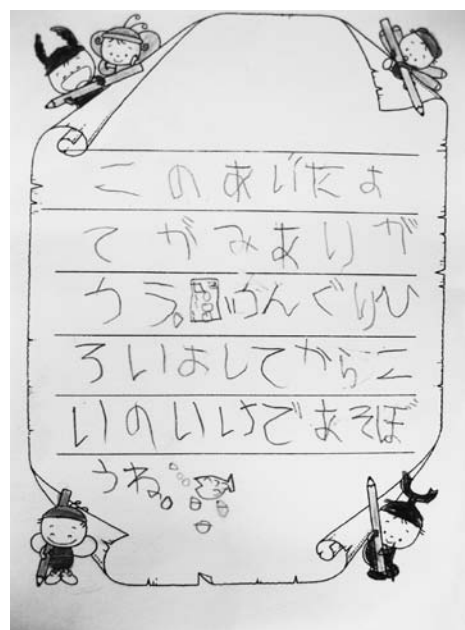 このあいだお
てがみありが
とう。どんぐりひ
ろいおしてからこ
いのいけであそぼ
うね。